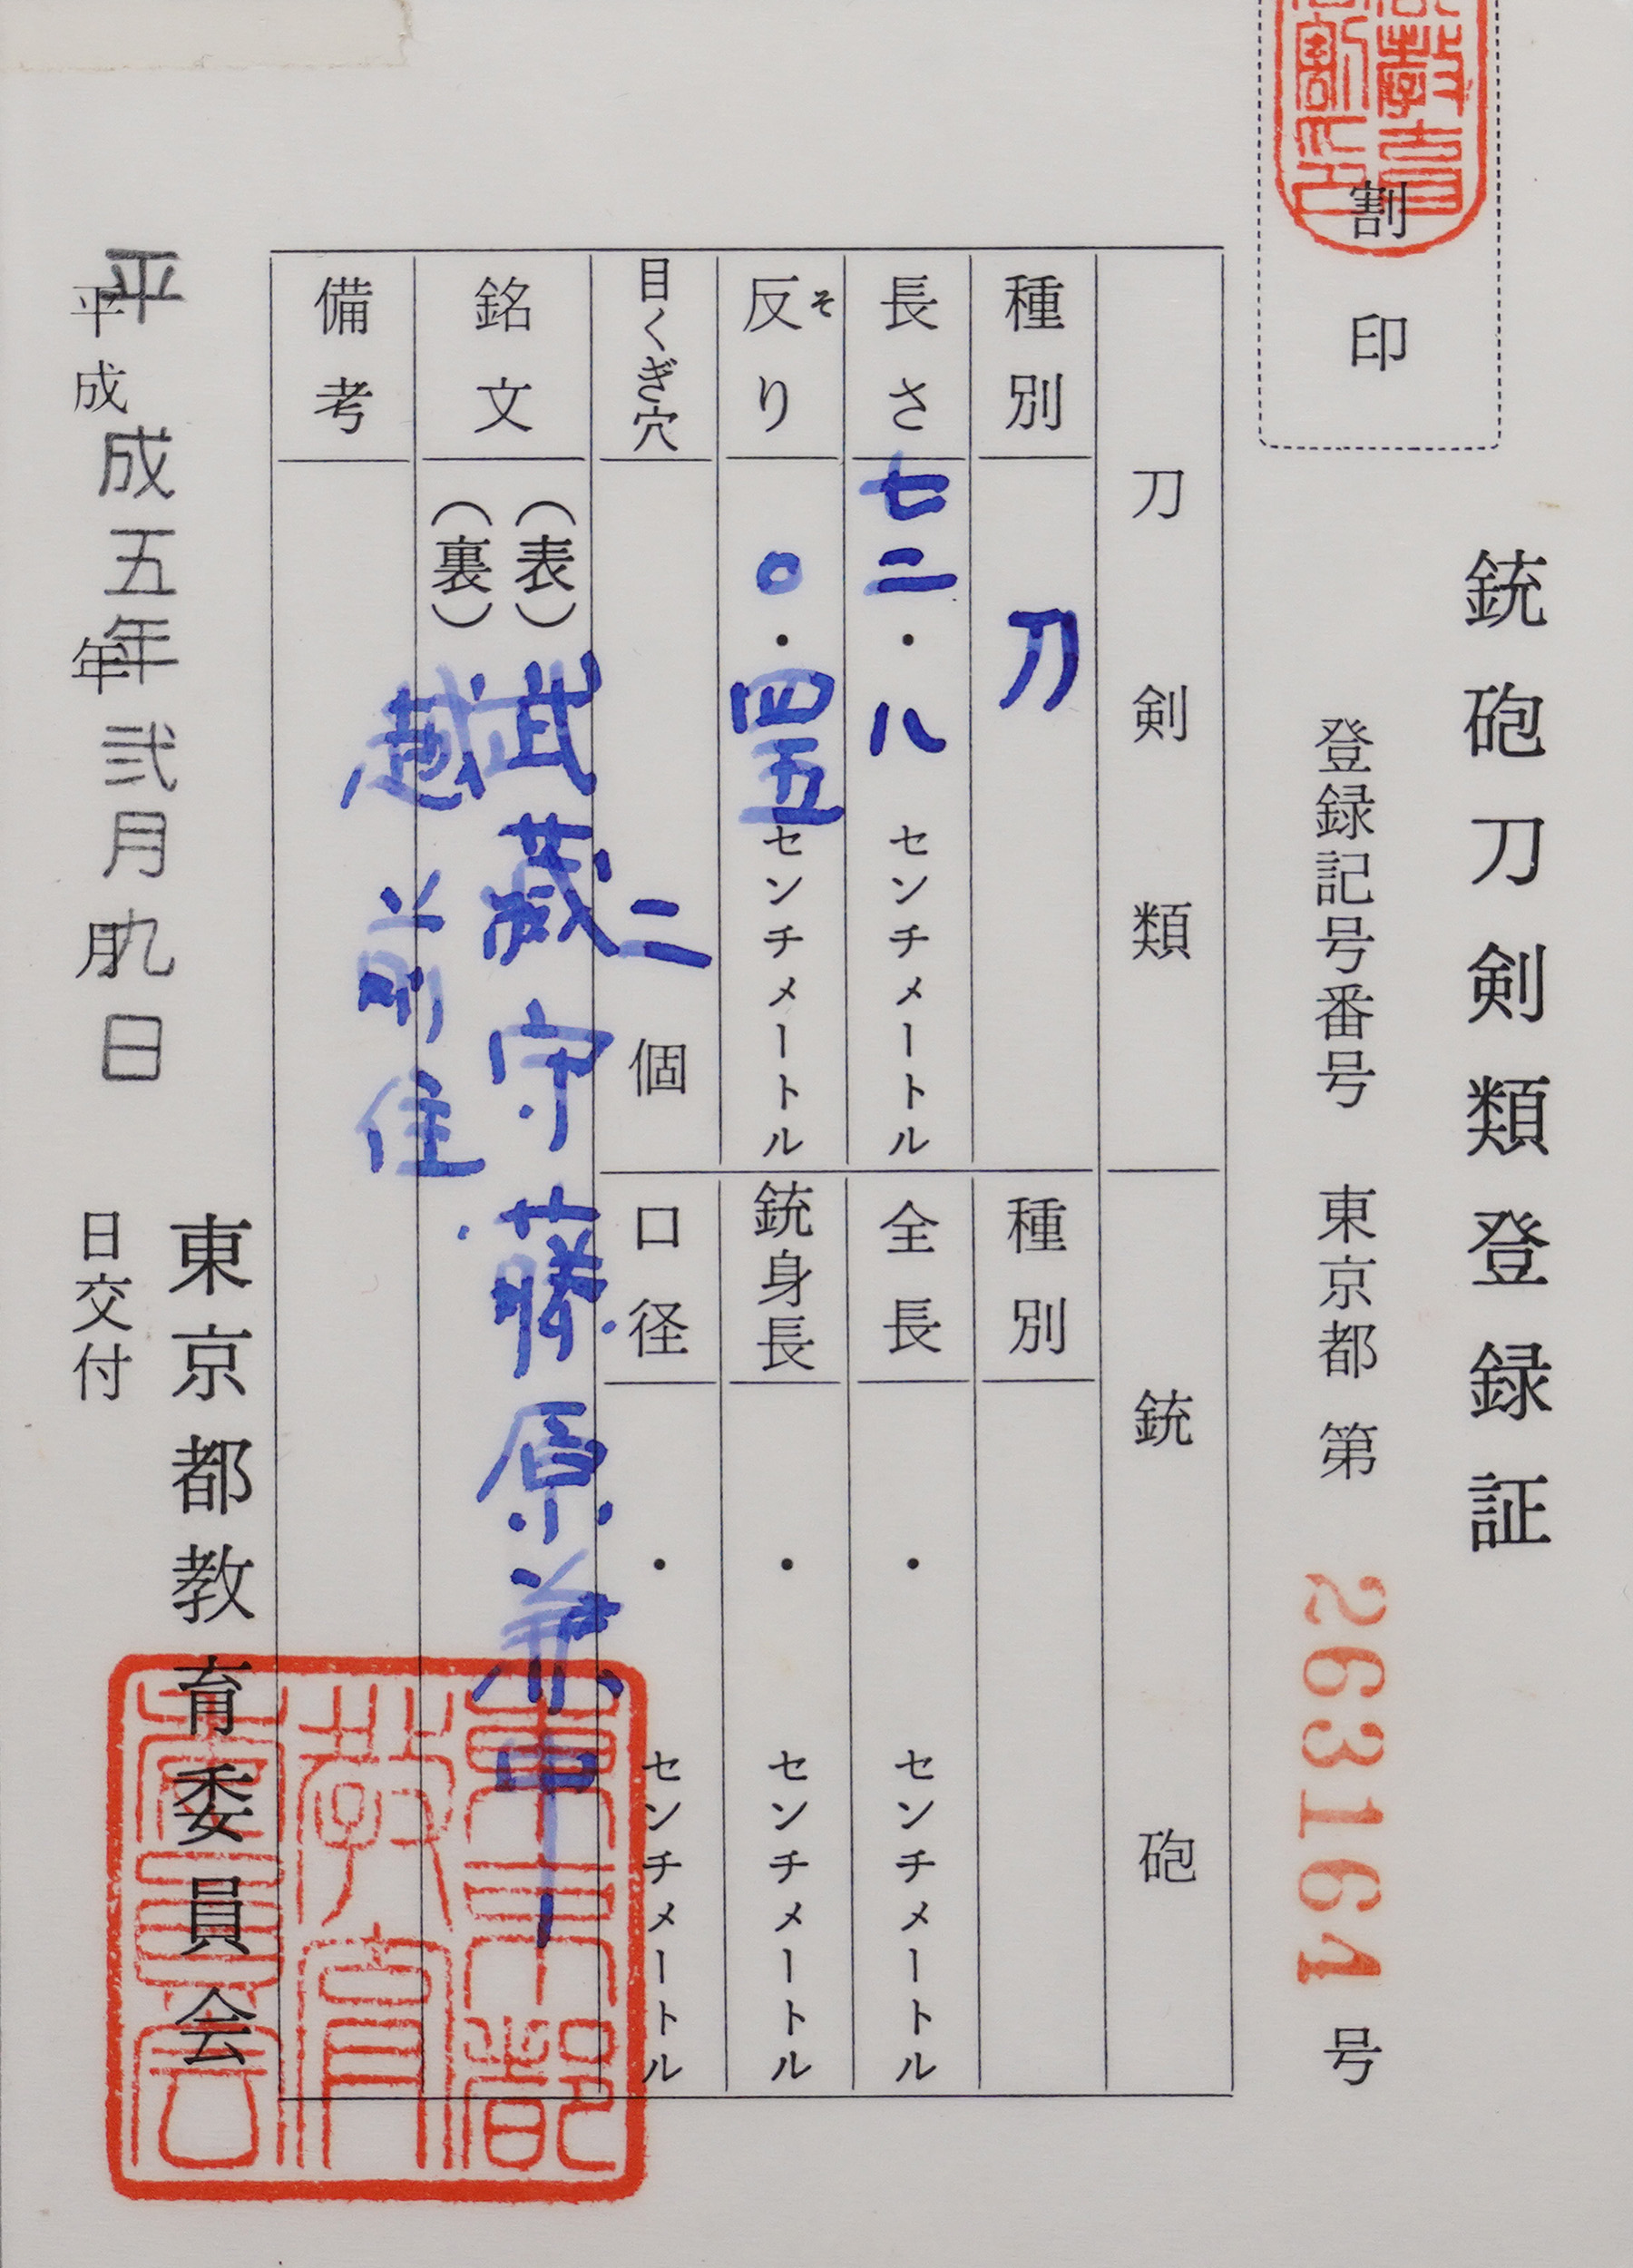 銃砲刀剣類登録証
割印
登録記号番号 東京都 第 263164 号
刀剣類
銃砲
種別 刀
長さ 七二・八 センチメートル
反り そ 〇・四五 センチメートル
目くぎ穴 二 個
種別
全長 ・ センチメートル
銃身長 ・ センチメートル
口径 ・ センチメートル
銘文 (表) 武蔵守藤原兼中
(裏) 越前住
備考
東京都教育委員会
平成五年弐月九日
平成 年 月 日交付